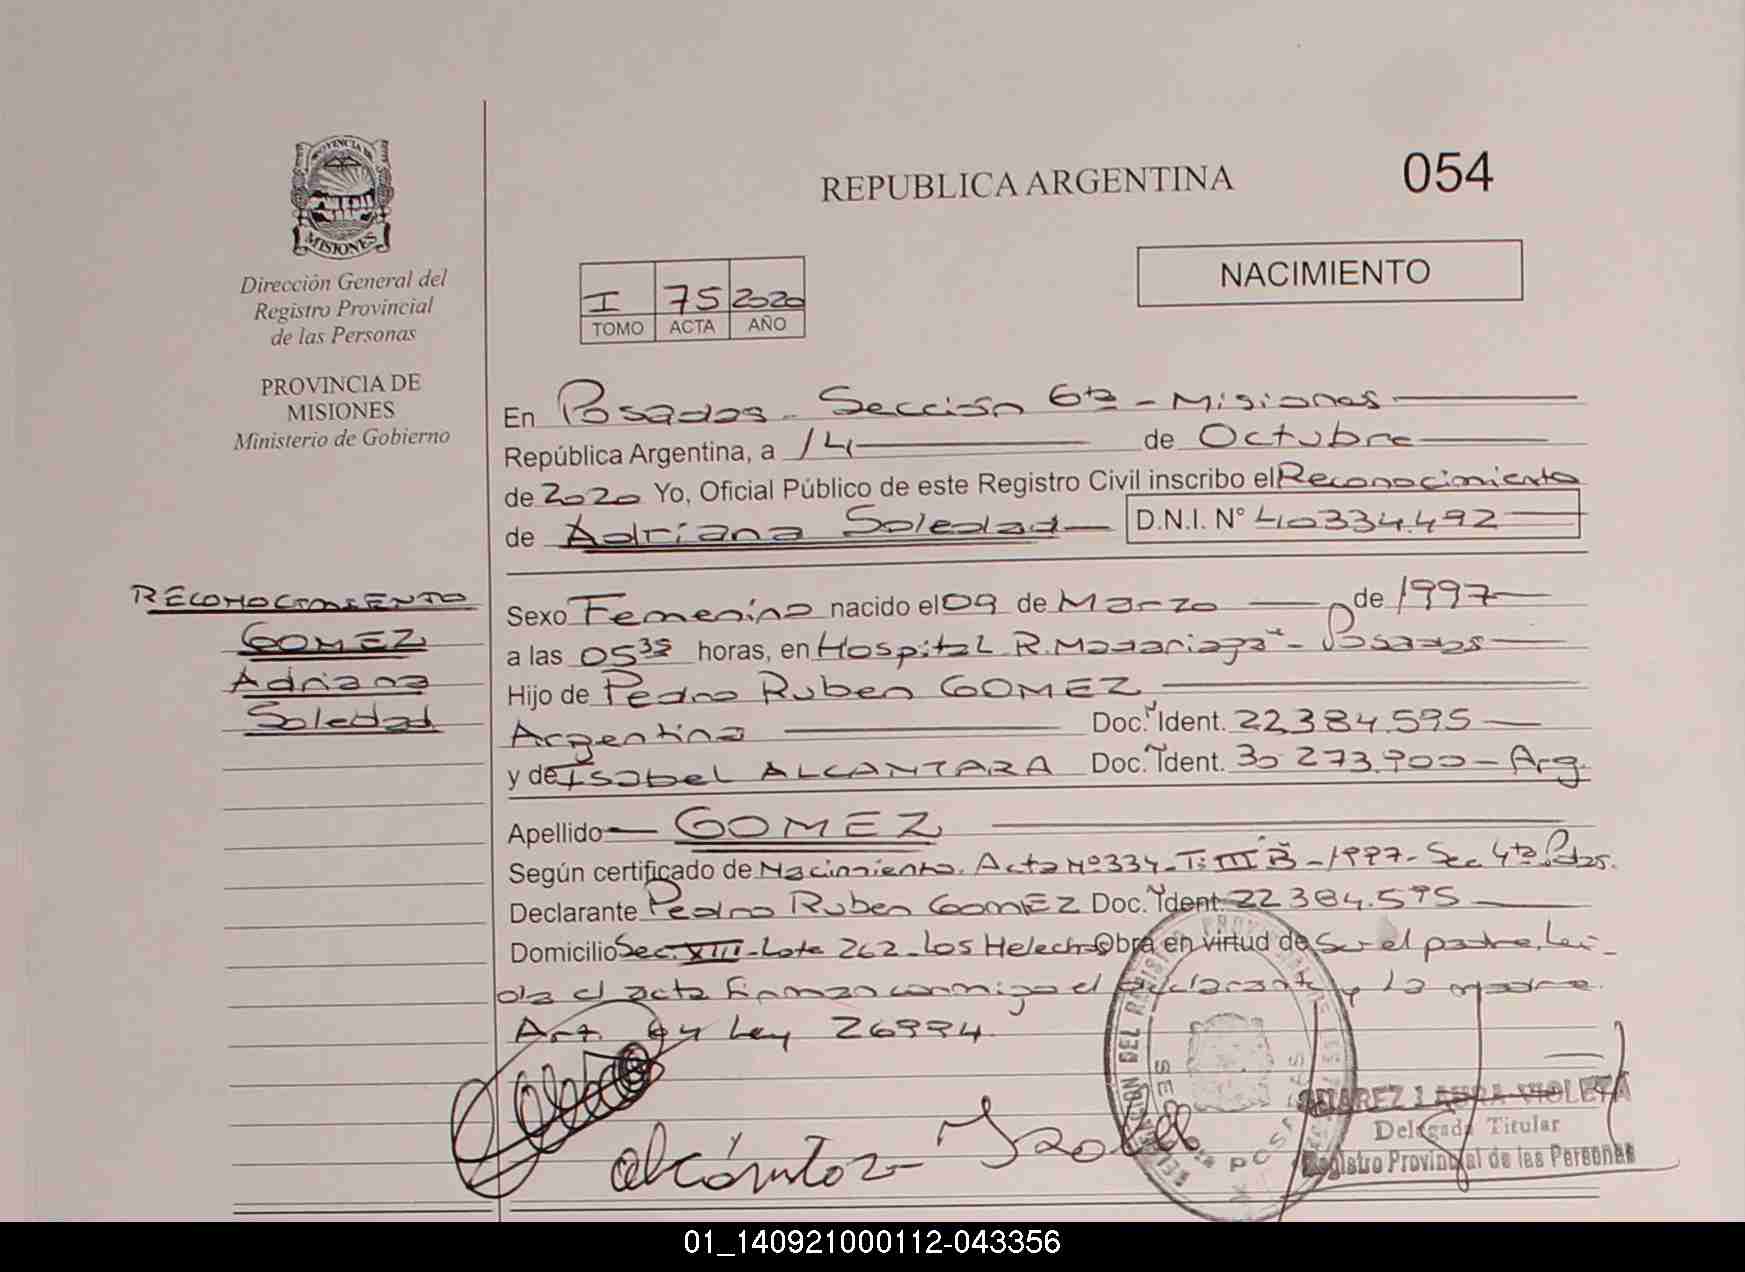 PROVINCIA DE
MISIONES
Dirección General del
Registro Provincial
de las Personas
PROVINCIA DE
MISIONES
Ministerio de Gobierno
REPUBLICA ARGENTINA
054
NACIMIENTO
I 75 2020
TOMO ACTA AÑO
En Posadas - Sección 6ta - Misiones
República Argentina, a 14 de Octubre
de 2020 Yo, Oficial Público de este Registro Civil inscribo el Reconocimiento
de Adriana Soledad D.N.I. N° 40334.492
RECONOCIMIENTO
GOMEZ
Adriana
Soledad
Sexo Femenino nacido el 09 de Marzo de 1997
a las 05 35 horas, en Hospital R. Madariaga - Posadas
Hijo de Pedro Ruben GOMEZ
Argentina Doc. Ident. 22384.595
y de Isabel ALCANTARA Doc. Ident. 30 273.900 - Arg.
Apellido GOMEZ
Según certificado de Nacimiento. Acta Nº 334 - T: III B - 1997 - Sec 4ta Pdas.
Declarante Pedro Ruben GOMEZ Doc. Ident. 22 384.595
Domicilio Sec. XIII - Lote 262 - Los Helechos Obra en virtud de Ser el padre. Lei-
da el acta firman conmigo el declarante y la madre.
Art. 64 Ley 26994.
SUAREZ LAURA VIOLETA
Delegada Titular
Registro Provincial de las Personas
01_140921000112-043356